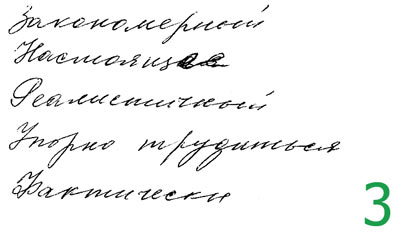 Закономерный
Настоящее
Реалистичный
Упорно трудиться
Фактически
3